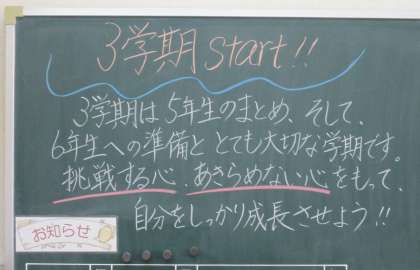 3学期 start!!
3学期は5年生のまとめ、そして、
6年生への準備と とても大切な学期です。
挑戦する心、あきらめない心をもって、
自分をしっかり成長させよう!!
お知らせ